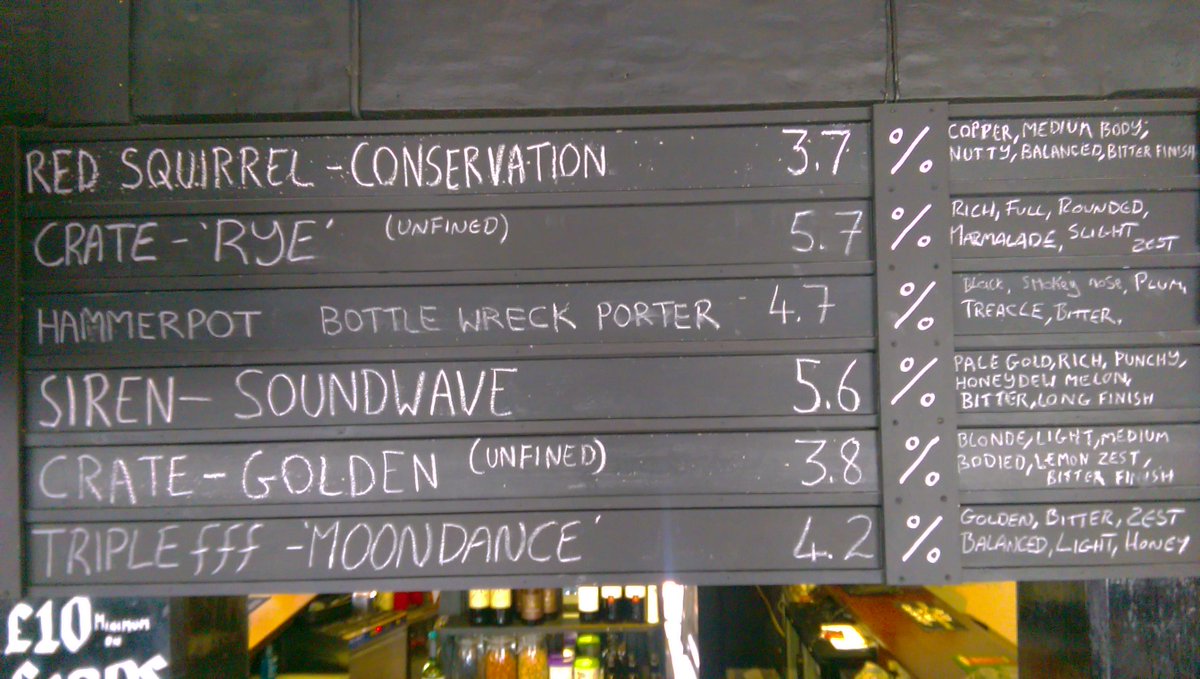 RED SQUIRREL - CONSERVATION 3.7 %
COPPER, MEDIUM BODY,
NUTTY, BALANCED, BITTER FINISH
CRATE - 'RYE' (UNFINED) 5.7 %
RICH, FULL, ROUNDED,
MARMALADE, SLIGHT
ZEST
HAMMERPOT BOTTLE WRECK PORTER - 4.7 %
Black, Smokey nose, PLUM,
TREACLE, BITTER.
SIREN - SOUNDWAVE 5.6 %
PALE GOLD, RICH, PUNCHY,
HONEYDEW MELON,
BITTER, LONG FINISH
CRATE - GOLDEN (UNFINED) 3.8 %
BLONDE, LIGHT, MEDIUM
BODIED, LEMON ZEST,
BITTER FINISH
TRIPLE fff - 'MOONDANCE' 4.2 %
GOLDEN, BITTER, ZEST
BALANCED, LIGHT, HONEY
£10 MINIMUM
ON
CARDS